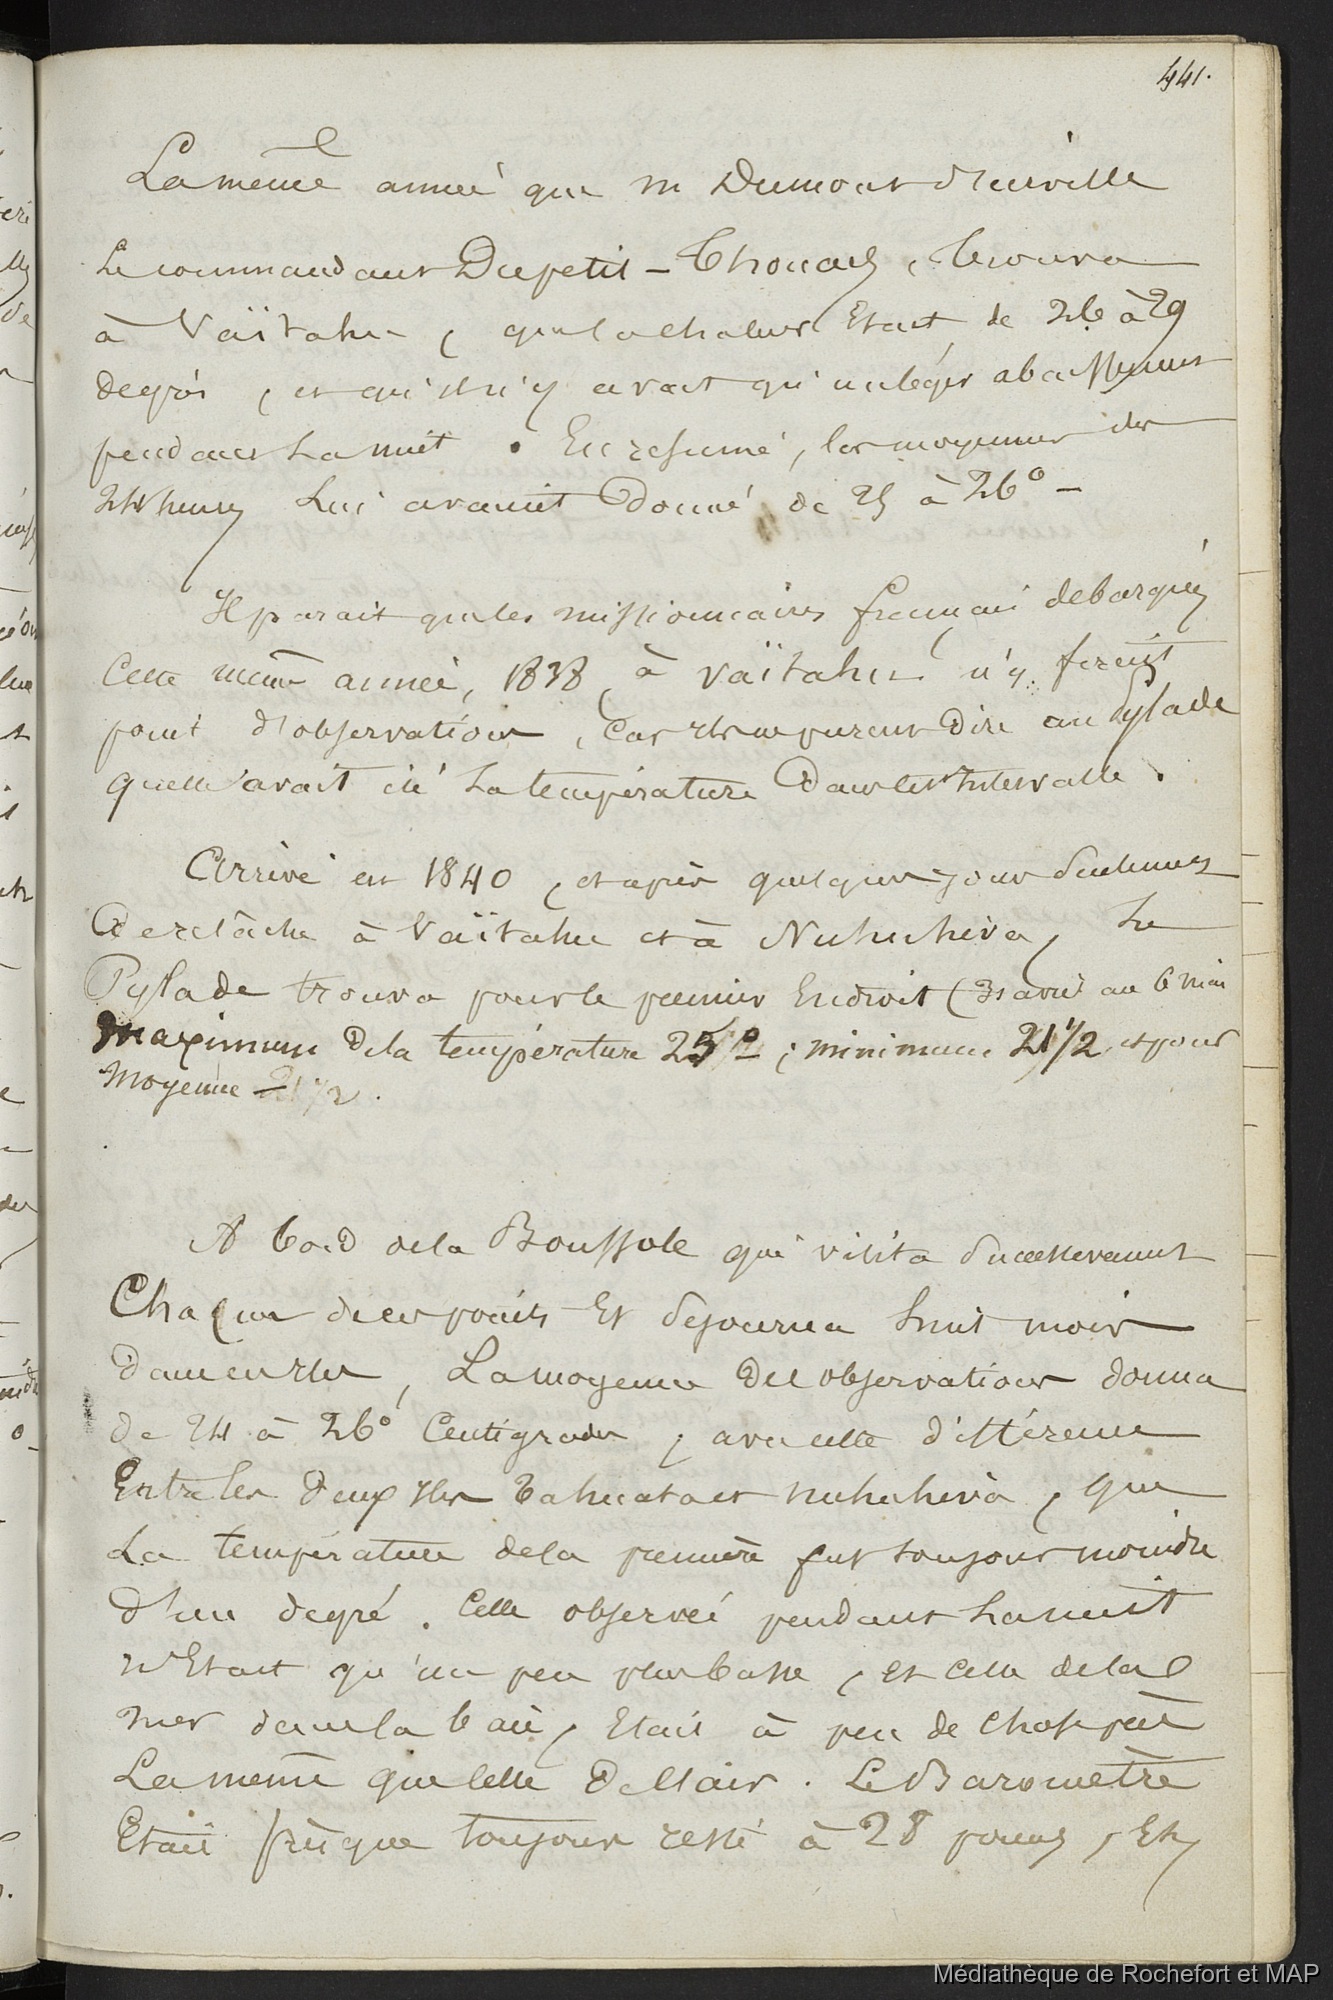 441.
La même année que m Dumont d'urville
Le commandant Dupetit-Thouars, trouva
à Vaïtahu, que la chaleur Etait de 26 à 29
degrés, et qu'il n'y avait qu'un léger abaissement
pendant La nuit. En résumé, les moyennes des
24 heures Lui avaient Donné de 25 à 26° -
Il parait que les missionnaires français debarqués
Cette même année, 1838, à Vaïtahu n'y firent
point d'observations, Car ils ne purent Dire au Pylade
quelle avait été La température Dans cet Intervalle.
Arrivé en 1840, et après quelques jours Seulement
De relâche à Vaïtahu et à Nuhuhiva, Le
Pylade trouva pour le premier Endroit (31 avril au 6 mai
Maximum De la température 25°; minimum 21 1/2 et pour
Moyenne 21 1/2.
A bord de la Boussole qui visita Successivement
Chacun de ces points Et Sejourna huit mois
dans ces Iles, La moyenne Des observations donna
de 24 à 26° Centigrades, avec cette différence
Entre les deux Iles Tahuata et nuhuhiva, que
La température de la première fut toujours moindre
d'un degré. Celle observée pendant La nuit
n'Etait qu'un peu plus basse, et celle de la
mer dans la baie, Etait à peu de chose près
La même que celle De l'air. Le Baromètre
Etait presque toujours resté à 28 pouces, Et,
Médiathèque de Rochefort et MAP